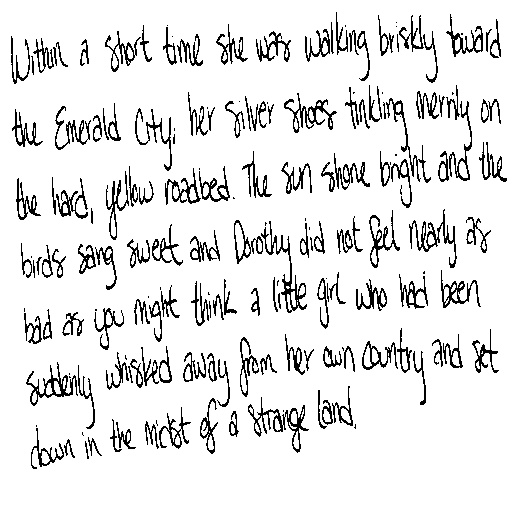 Within a short time she was walking briskly toward
the Emerald City, her silver shoes tinkling merrily on
the hard, yellow roadbed. The sun shone bright and the
birds sang sweet and Dorothy did not feel nearly as
bad as you might think a little girl who had been
suddenly whisked away from her own country and set
down in the midst of a strange land.